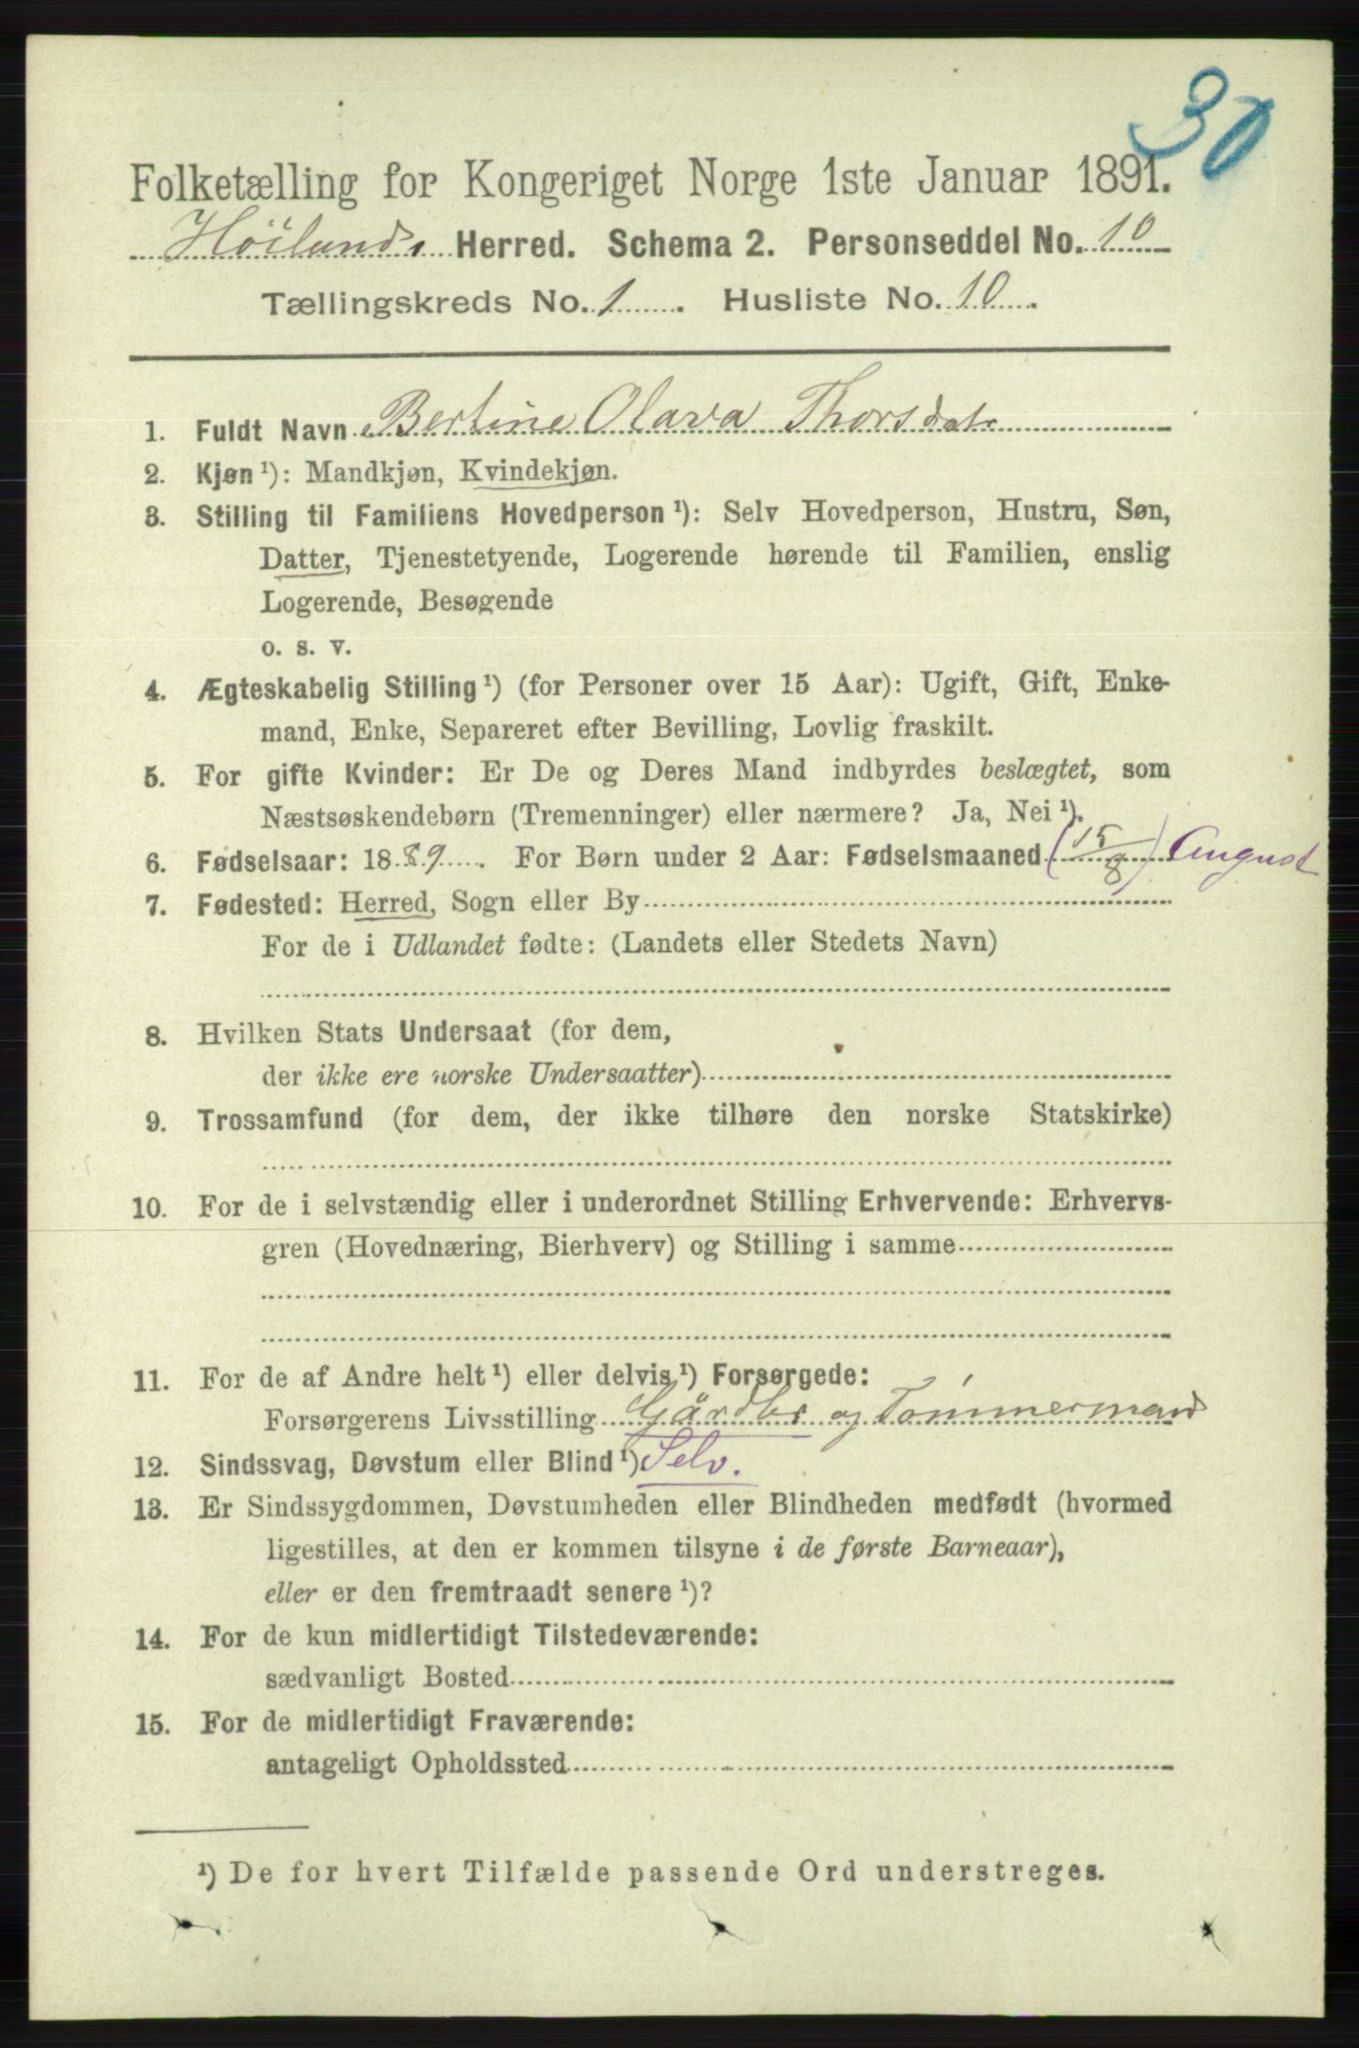 30
Folketælling for Kongeriget Norge 1ste Januar 1891.
Höilands Herred. Schema 2. Personseddel No. 10
Tællingskreds No. 1. Husliste No. 10.
1. Fuldt Navn Bertine Olava Thorsdatr
2. Kjøn ¹): Mandkjøn, Kvindekjøn.
3. Stilling til Familiens Hovedperson ¹): Selv Hovedperson, Hustru, Søn,
Datter, Tjenestetyende, Logerende hørende til Familien, enslig
Logerende, Besøgende
o. s. v.
4. Ægteskabelig Stilling ¹) (for Personer over 15 Aar): Ugift, Gift, Enke-
mand, Enke, Separeret efter Bevilling, Lovlig fraskilt.
5. For gifte Kvinder: Er De og Deres Mand indbyrdes beslægtet, som
Næstsøskendebørn (Tremenninger) eller nærmere? Ja, Nei ¹).
6. Fødselsaar: 1889. For Børn under 2 Aar: Fødselsmaaned (15/8) August
7. Fødested: Herred, Sogn eller By
For de i Udlandet fødte: (Landets eller Stedets Navn)
8. Hvilken Stats Undersaat (for dem,
der ikke ere norske Undersaatter)
9. Trossamfund (for dem, der ikke tilhøre den norske Statskirke)
10. For de i selvstændig eller i underordnet Stilling Erhvervende: Erhvervs-
gren (Hovednæring, Bierhverv) og Stilling i samme
11. For de af Andre helt ¹) eller delvis ¹) Forsørgede:
Forsørgerens Livsstilling Gårdbr og Tömmermand
12. Sindssvag, Døvstum eller Blind ¹) Selv.
13. Er Sindssygdommen, Døvstumheden eller Blindheden medfødt (hvormed
ligestilles, at den er kommen tilsyne i de første Barneaar),
eller er den fremtraadt senere ¹)?
14. For de kun midlertidigt Tilstedeværende:
sædvanligt Bosted
15. For de midlertidigt Fraværende:
antageligt Opholdssted
¹) De for hvert Tilfælde passende Ord understreges.